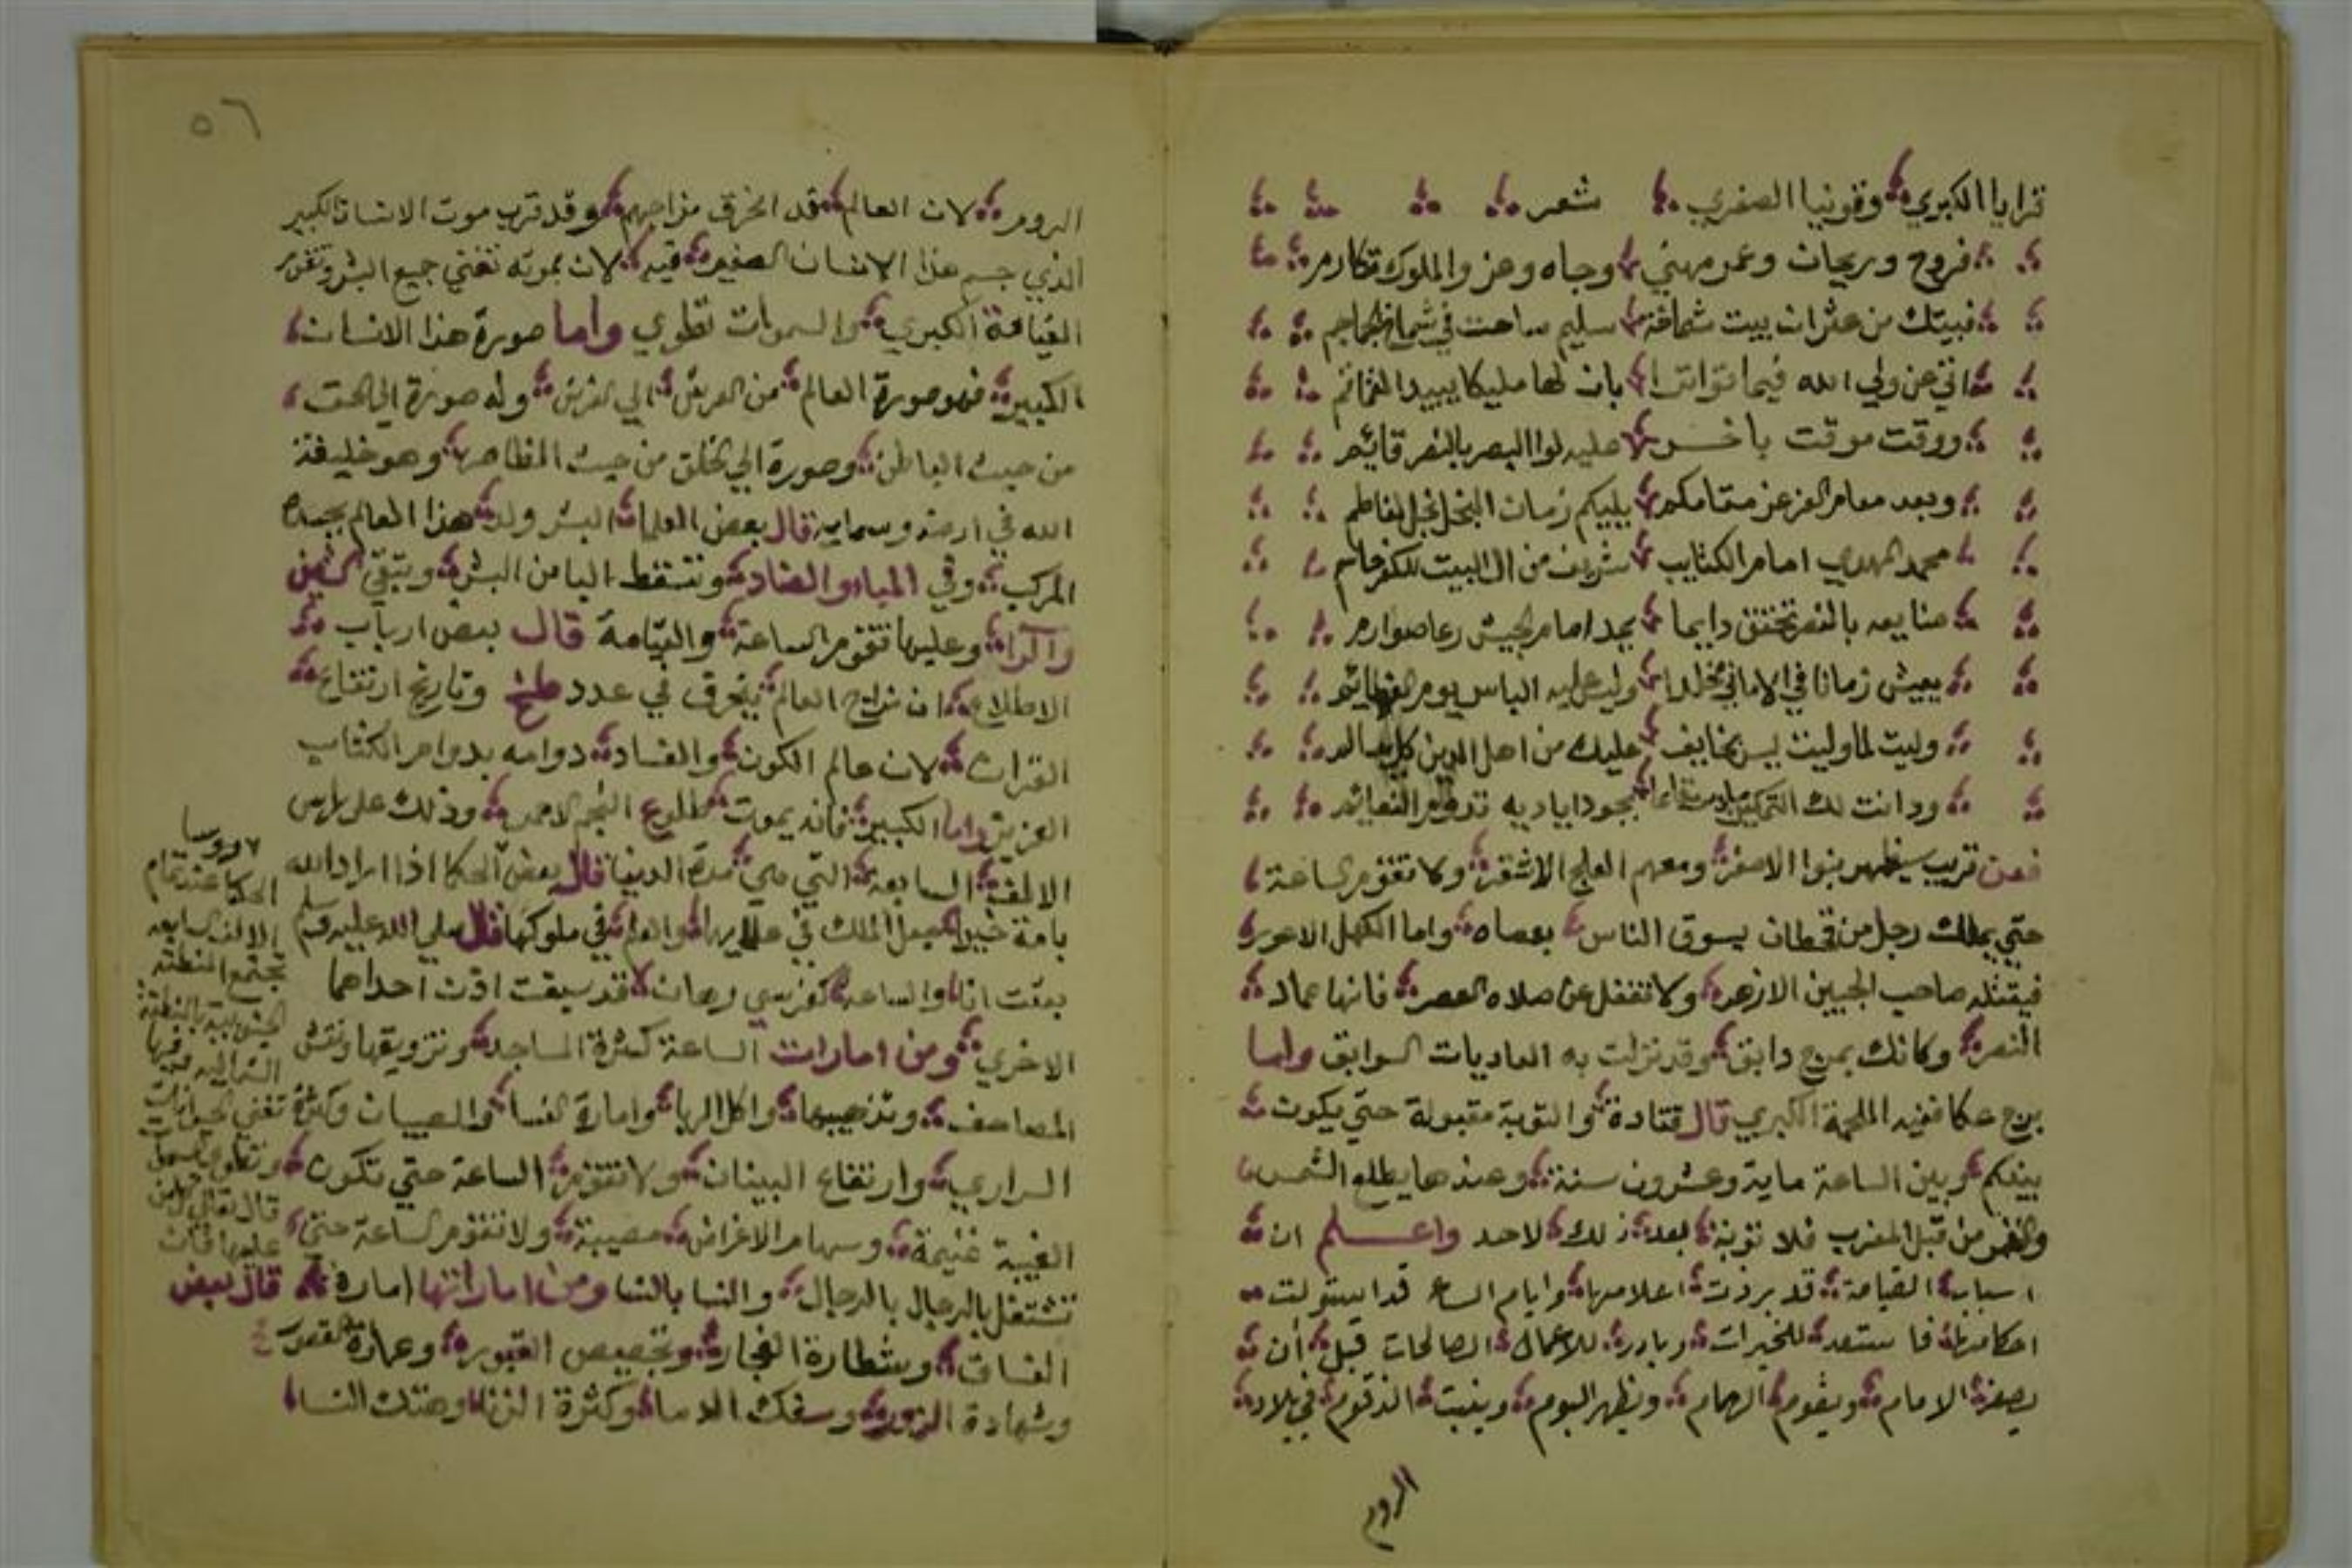 ترايا الكبري وقونيا الصغري شعر
فروح وريحان وعمر مهني وجاه وعز والملوك تكارم
فبيتك من عثرات بيت شماخة سليم ساحت في شماخ
اتي عن ولي الله فيما تواترا بان لها مليكا يبيد
ووقت موقت باخر عليه لوا النصر بالنصر قائم
وبعد معامر العز عز مقامكم يليكم زمان النحل نجل لفاطم
محمد المهدي امام الكتايب شريف من ال البيت للكفر حاسم
صنايعه بالنصر تختفق دايما بجد امام الجيش
يعيش زمانا في الاماني مخلدا وليت عليه الباس يوم
وليت لما وليت ليس بخايف عليك من اهل الدين كل سالم
ودانت لك بجود اياديه
فعن قريب سيظهر بنوا الاصفر ومعهم العلج الاشقر ولا تقوم الساعة
حتي يملك رجل من قحطان يسوق الناس بعصاه واما الكهل الاعور
فيقتله صاحب الجبين الازهر ولا تغفل عن صلاه العصر فانها عماد
النصر وكانك بمرج دابق وقد نزلت به العاديات السوابق واما
برج عكا ففيه الملحمة الكبري قال قتادة والتوبة مقبولة حتي يكون
بينكم وبين الساعة ماية وعشرون سنة وعندها يطلع الشمس
والقمر من قبل المغرب فلا توبة بعد ذلك لاحد واعلم ان
اسباب القيامة قد بردت اعلامها وايام الساع قد استولت
احكامها فاستعد للخيرات وبادر للاعمال الصالحات قبل أن
يصفر الامام ويقوم الهمام ويظهر البوم وينبت الزقوم في بلاد
الروم
٥٦
الروم لان العالم قد انخرق مزاجهم وقد قرب موت الانسان الكبير
الذي جسم هذا الانسان الصغير فيه لان بموته تفني جميع البشر وتقوم
القيامة الكبري والسموات تطوي واما صورة هذا الانسان
الكبير فهو صورة العالم من العرش الي الفرش وله صورة الي الحق
من حيث الباطن وصورة الي الخلق من حيث المظاهر وهو خليفة
الله في ارضه وسمايه قال بعض العلما البشر ولد هذا العالم بجسده
المركب وفي الميا والضاد وتسقط اليا من البشر وتبقي الشين
والرا وعليها تقوم الساعة والقيامة قال بعض ارباب
الاطلاع ان مزاج العالم ينحرف في عدد طخ وتاريخ ارتفاع
القران لان عالم الكون والفساد دوامه بدوام الكتاب
العزيز واما الكبير فانه يموت بطلوع النجم الاحمر وذلك علي راس
الالف السابعة التي هي مدة الدنيا قال بعض الحكما اذا اراد الله
بامة خيرا جعل الملك في علمايها والعلم في ملوكها قال صلي الله عليه وسلم
بعثت انا والساعة كفرسي رهان قد سبقت اذن احداهما
الاخري ومن امارات الساعة كثرة المساجد وتزويقها ونقش
المصاحف وتذهيبها واكل الربا وامارة النسا والصبيان وكثرة
السراري وارتفاع البينان ولا تقوم الساعة حتي تكون
الغيبة غنيمة وسهام الاغراض مصيبة ولا تقوم الساعة حتي
تشتغل بالرجال بالرجال والنسا بالنسا ومن اماراتها امارة
الفساق وشطارة الفجار وتجصيص القبور وعمارة القصور
وشهادة الزور وسفك الدما وكثرة الزنا وهتك النسا
الحكما عند تمام
الالف السابعه
تجتمع المنطقة
الشمالية وفيها
تفني الحيوانات
وتطوي
قال تعالي كل من
عليها فان
قال بعض